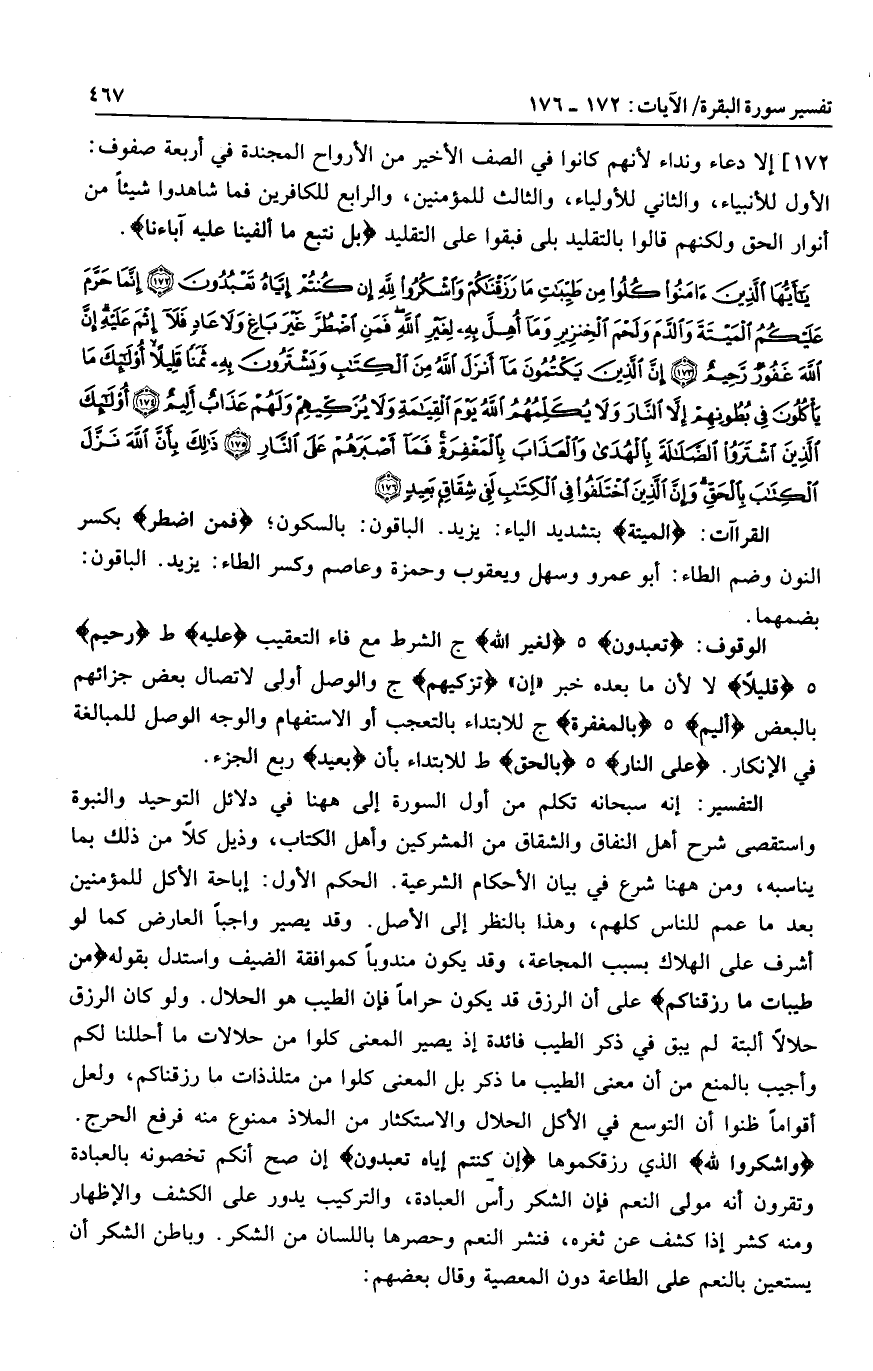 تفسير سورة البقرة/ الآيات: ١٧٢ - ١٧٦
٤٦٧
١٧٢] إلا دعاء ونداء لأنهم كانوا في الصف الأخير من الأرواح المجندة في أربعة صفوف:
الأول للأنبياء، والثاني للأولياء، والثالث للمؤمنين، والرابع للكافرين فما شاهدوا شيئاً من
أنوار الحق ولكنهم قالوا بالتقليد بلى فبقوا على التقليد ﴿بل نتبع ما ألفينا عليه آباءنا﴾.
يَٰٓأَيُّهَا ٱلَّذِينَ ءَامَنُوا۟ كُلُوا۟ مِن طَيِّبَٰتِ مَا رَزَقْنَٰكُمْ وَٱشْكُرُوا۟ لِلَّهِ إِن كُنتُمْ إِيَّاهُ تَعْبُدُونَ ﴿١٧٢﴾ إِنَّمَا حَرَّمَ
عَلَيْكُمُ ٱلْمَيْتَةَ وَٱلدَّمَ وَلَحْمَ ٱلْخِنزِيرِ وَمَآ أُهِلَّ بِهِۦ لِغَيْرِ ٱللَّهِ ۖ فَمَنِ ٱضْطُرَّ غَيْرَ بَاغٍ وَلَا عَادٍ فَلَآ إِثْمَ عَلَيْهِ ۚ إِنَّ
ٱللَّهَ غَفُورٌ رَّحِيمٌ ﴿١٧٣﴾ إِنَّ ٱلَّذِينَ يَكْتُمُونَ مَآ أَنزَلَ ٱللَّهُ مِنَ ٱلْكِتَٰبِ وَيَشْتَرُونَ بِهِۦ ثَمَنًا قَلِيلًا ۙ أُو۟لَٰٓئِكَ مَا
يَأْكُلُونَ فِى بُطُونِهِمْ إِلَّا ٱلنَّارَ وَلَا يُكَلِّمُهُمُ ٱللَّهُ يَوْمَ ٱلْقِيَٰمَةِ وَلَا يُزَكِّيهِمْ وَلَهُمْ عَذَابٌ أَلِيمٌ ﴿١٧٤﴾ أُو۟لَٰٓئِكَ
ٱلَّذِينَ ٱشْتَرَوُا۟ ٱلضَّلَٰلَةَ بِٱلْهُدَىٰ وَٱلْعَذَابَ بِٱلْمَغْفِرَةِ ۚ فَمَآ أَصْبَرَهُمْ عَلَى ٱلنَّارِ ﴿١٧٥﴾ ذَٰلِكَ بِأَنَّ ٱللَّهَ نَزَّلَ
ٱلْكِتَٰبَ بِٱلْحَقِّ ۗ وَإِنَّ ٱلَّذِينَ ٱخْتَلَفُوا۟ فِى ٱلْكِتَٰبِ لَفِى شِقَاقٍۭ بَعِيدٍ ﴿١٧٦﴾
القراآت: ﴿الميتة﴾ بتشديد الياء: يزيد. الباقون: بالسكون؛ ﴿فمن اضطر﴾ بكسر
النون وضم الطاء: أبو عمرو وسهل ويعقوب وحمزة وعاصم وكسر الطاء: يزيد. الباقون:
بضمهما.
الوقوف: ﴿تعبدون﴾ ٥ ﴿لغير الله﴾ ج الشرط مع فاء التعقيب ﴿عليه﴾ ط ﴿رحيم﴾
٥ ﴿قليلاً﴾ لا لأن ما بعده خبر «إن» ﴿تزكيهم﴾ ج والوصل أولى لاتصال بعض جزائهم
بالبعض ﴿أليم﴾ ٥ ﴿بالمغفرة﴾ ج للابتداء بالتعجب أو الاستفهام والوجه الوصل للمبالغة
في الإنكار. ﴿على النار﴾ ٥ ﴿بالحق﴾ ط للابتداء بأن ﴿بعيد﴾ ربع الجزء.
التفسير: إنه سبحانه تكلم من أول السورة إلى ههنا في دلائل التوحيد والنبوة
واستقصى شرح أهل النفاق والشقاق من المشركين وأهل الكتاب، وذيل كلاً من ذلك بما
يناسبه، ومن ههنا شرع في بيان الأحكام الشرعية. الحكم الأول: إباحة الأكل للمؤمنين
بعد ما عمم للناس كلهم، وهذا بالنظر إلى الأصل. وقد يصير واجباً العارض كما لو
أشرف على الهلاك بسبب المجاعة، وقد يكون مندوباً كموافقة الضيف واستدل بقوله﴿من
طيبات ما رزقناكم﴾ على أن الرزق قد يكون حراماً فإن الطيب هو الحلال. ولو كان الرزق
حلالاً ألبتة لم يبق في ذكر الطيب فائدة إذ يصير المعنى كلوا من حلالات ما أحللنا لكم
وأجيب بالمنع من أن معنى الطيب ما ذكر بل المعنى كلوا من متلذذات ما رزقناكم، ولعل
أقواماً ظنوا أن التوسع في الأكل الحلال والاستكثار من الملاذ ممنوع منه فرفع الحرج.
﴿واشكروا لله﴾ الذي رزقكموها ﴿إن كنتم إياه تعبدون﴾ إن صح أنكم تخصونه بالعبادة
وتقرون أنه مولى النعم فإن الشكر رأس العبادة، والتركيب يدور على الكشف والإظهار
ومنه كشر إذا كشف عن ثغره، فنشر النعم وحصرها باللسان من الشكر. وباطن الشكر أن
يستعين بالنعم على الطاعة دون المعصية وقال بعضهم: